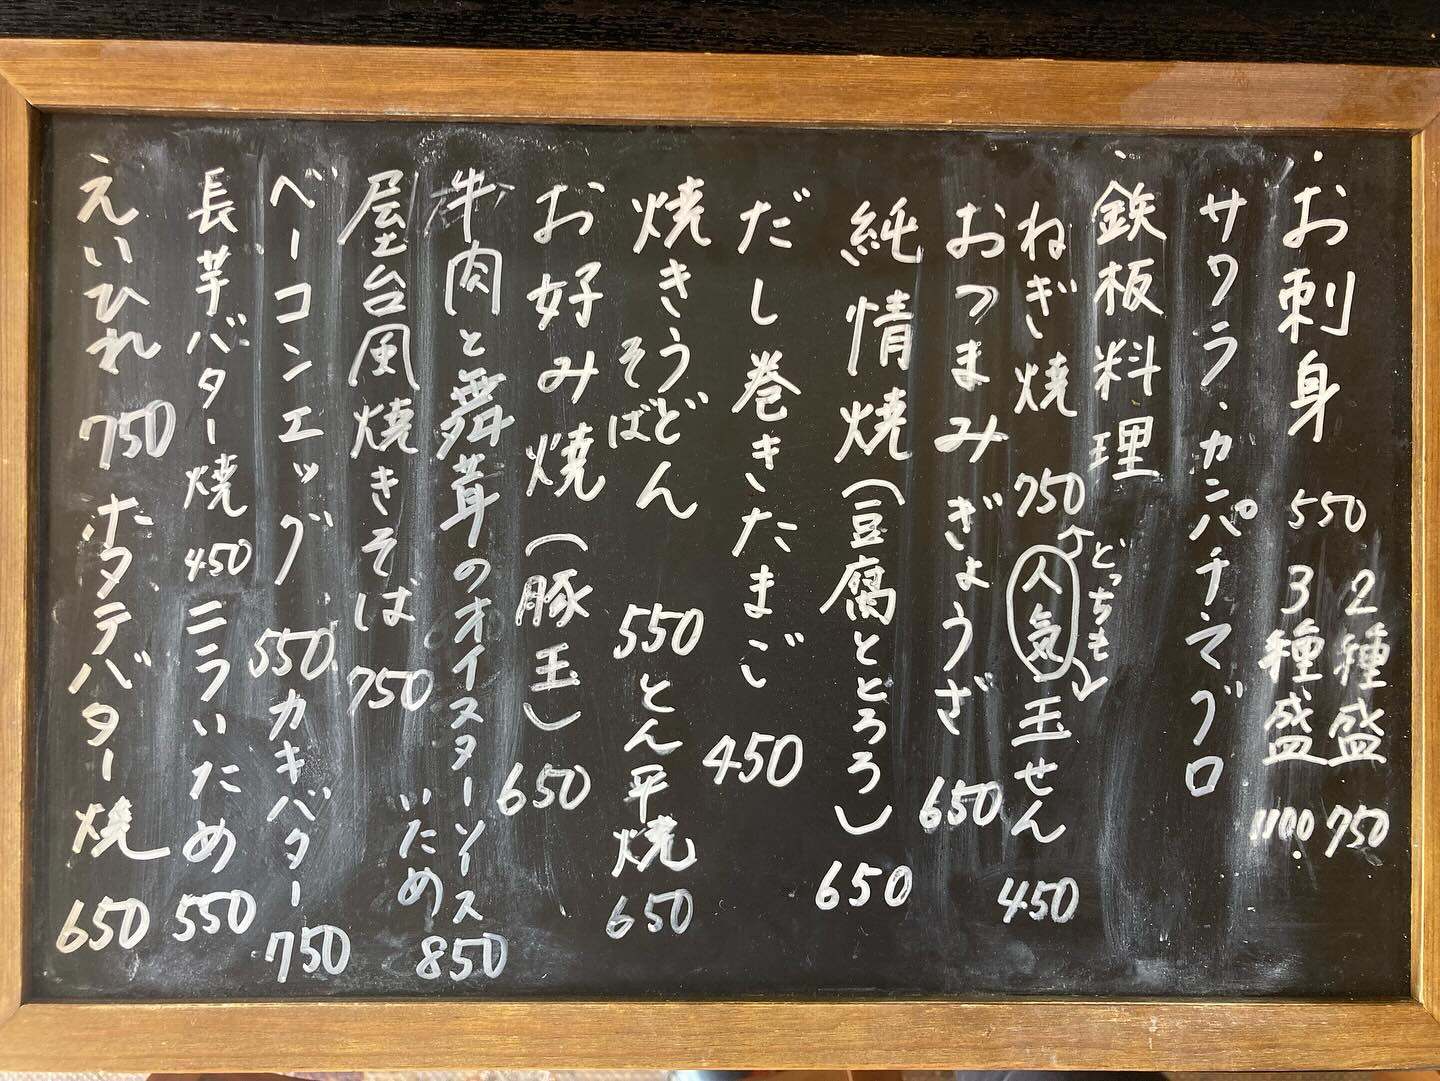 ・お刺身 550 2種盛 750
3種盛 1100.
サワラ・カンパチ・マグロ
・鉄板料理
ねぎ焼 750 人気 どっちも 玉せん 450
おつまみぎょうざ 650
純情焼(豆腐ととろろ) 650
だし巻きたまご 450
焼きうどん そば 550 とん平焼 650
お好み焼(豚玉) 650
牛肉と舞茸のオイスターソース
いため 850
屋台風焼きそば 750
ベーコンエッグ 550 カキバター 750
長芋バター焼 450 ニラいため 550
えいひれ 750 ホタテバター焼 650